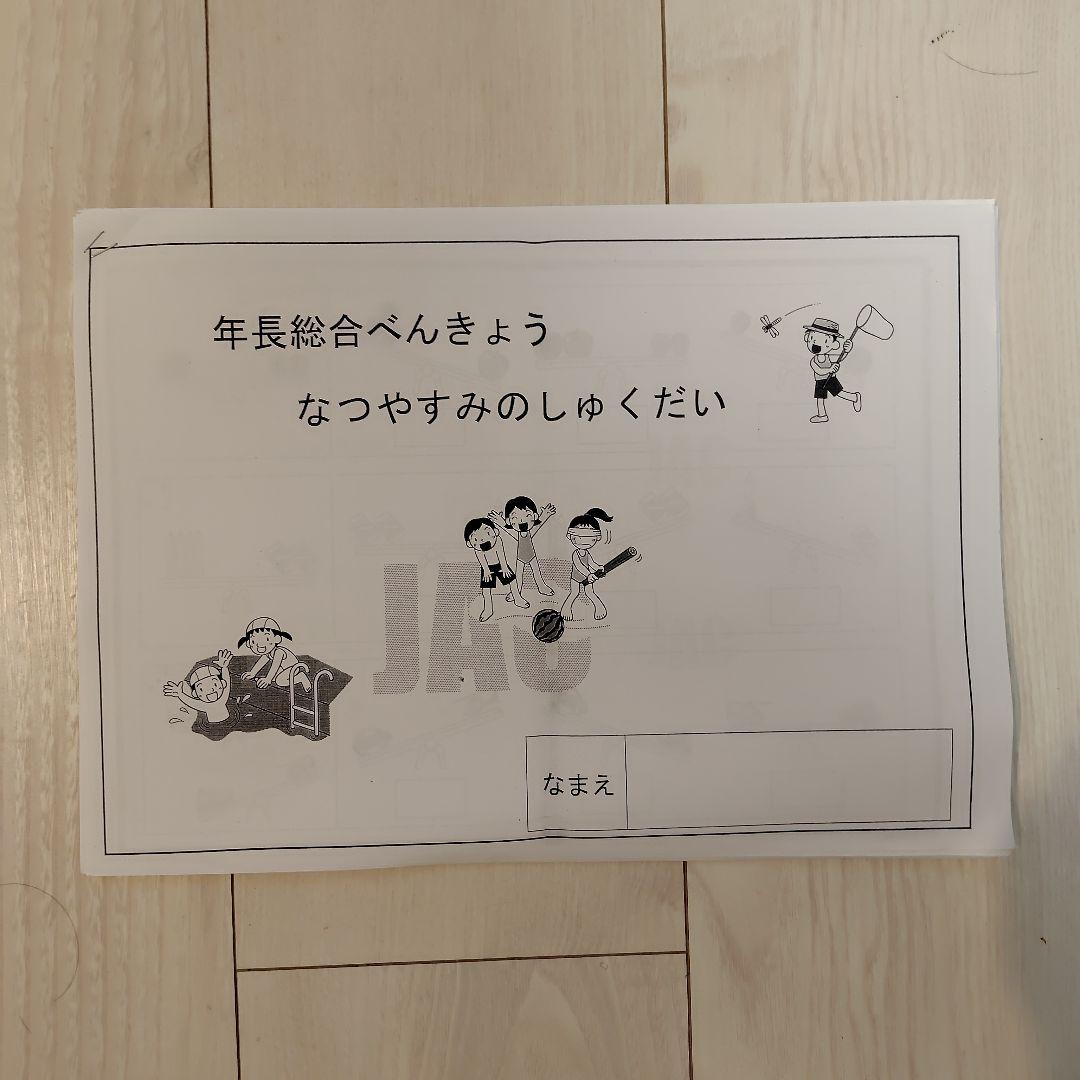 年長総合べんきょう
なつやすみのしゅくだい
JAC
なまえ